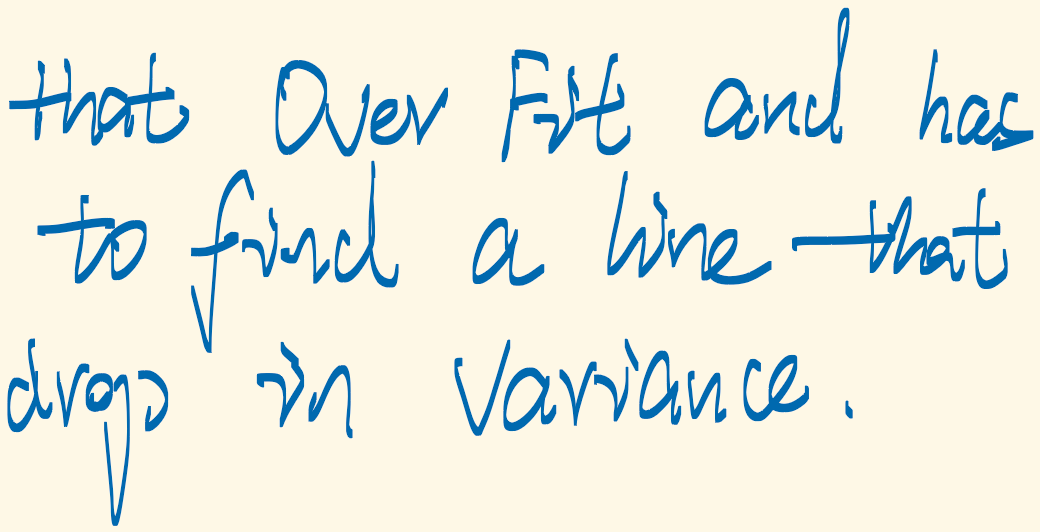 that Over Fit and has
to find a line that
drops in Variance.